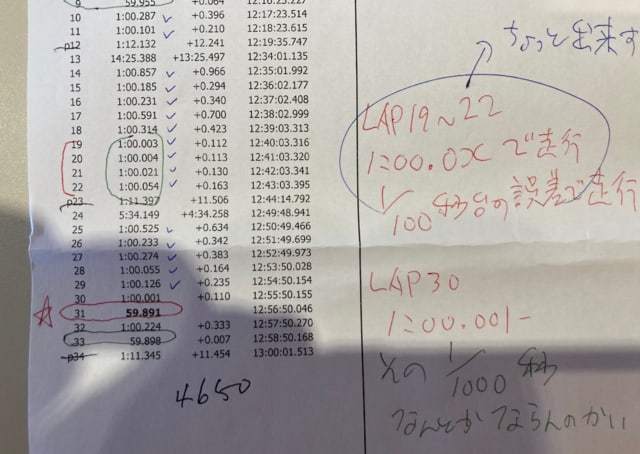 9 59.955 +0.064 12:16:23.227
10 1:00.287 +0.396 12:17:23.514
11 1:00.101 +0.210 12:18:23.615
p12 1:12.132 +12.241 12:19:35.747
13 14:25.388 +13:25.497 12:34:01.135
14 1:00.857 +0.966 12:35:01.992
15 1:00.185 +0.294 12:36:02.177
16 1:00.231 +0.340 12:37:02.408
17 1:00.591 +0.700 12:38:02.999
18 1:00.314 +0.423 12:39:03.313
19 1:00.003 +0.112 12:40:03.316
20 1:00.004 +0.113 12:41:03.320
21 1:00.021 +0.130 12:42:03.341
22 1:00.054 +0.163 12:43:03.395
p23 1:11.397 +11.506 12:44:14.792
24 5:34.149 +4:34.258 12:49:48.941
25 1:00.525 +0.634 12:50:49.466
26 1:00.233 +0.342 12:51:49.699
27 1:00.274 +0.383 12:52:49.973
28 1:00.055 +0.164 12:53:50.028
29 1:00.126 +0.235 12:54:50.154
30 1:00.001 +0.110 12:55:50.155
31 59.891 12:56:50.046
32 1:00.224 +0.333 12:57:50.270
33 59.898 +0.007 12:58:50.168
p34 1:11.345 +11.454 13:00:01.513
4650
ちょっと出来す
LAP19~22
1:00.0X で走行
1/100 秒台の誤差で走行
LAP30
1:00.001-
その 1/1000 秒
なんとかならんのかい